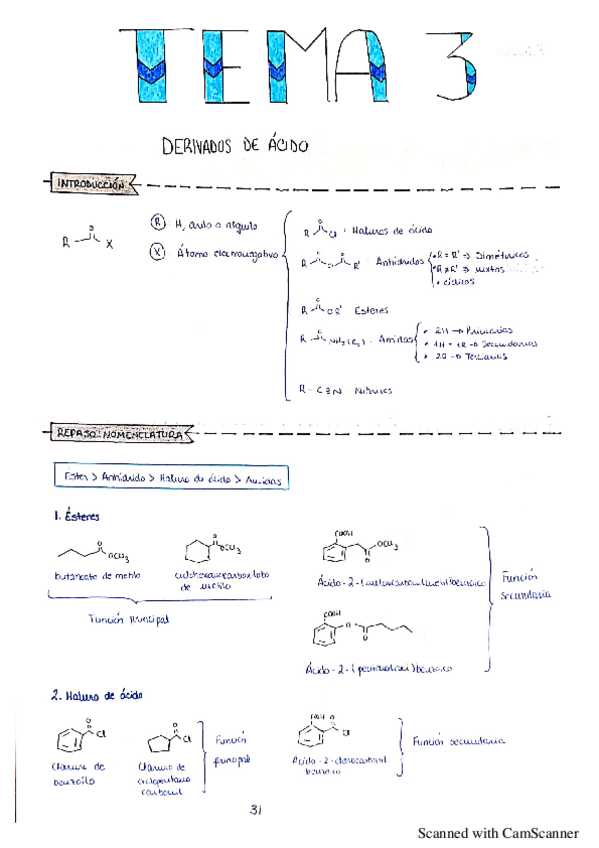 TEMA 3
DERIVADOS DE ÁCIDO
INTRODUCCIÓN
R H, arilo o alquilo
X Átomo electronegativo
R O X
R O Cl : Haluros de ácido
R O O O R' : Anhídridos
• R = R' => Simétricos
• R ≠ R' => Mixtos
• Cíclicos
R O OR' Ésteres
R O NH2(R2) : Amidas
• 2H → Primarias
• 1H + 1R → Secundarias
• 2R → Terciarias
R-C≡N Nitrilos
REPASO NOMENCLATURA
Ester > Anhídrido > Haluro de ácido > Amidas
1. Ésteres
O OCH3
butanoato de metilo
O OCH3
ciclohexanocarboxilato
de metilo
Función principal
COOH O OCH3
Ácido-2-(metoxicarbonilmetil)benzoico
COOH O O
Ácido-2-(pentanoiloxi)benzoico
Función
secundaria
2. Haluro de ácido
O Cl
Cloruro de
benzoílo
O Cl
Cloruro de
ciclopentano
carbonil
Función
principal
COOH O Cl
Ácido-2-clorocarbonil
benzoico
Función secundaria
31
Scanned with CamScanner